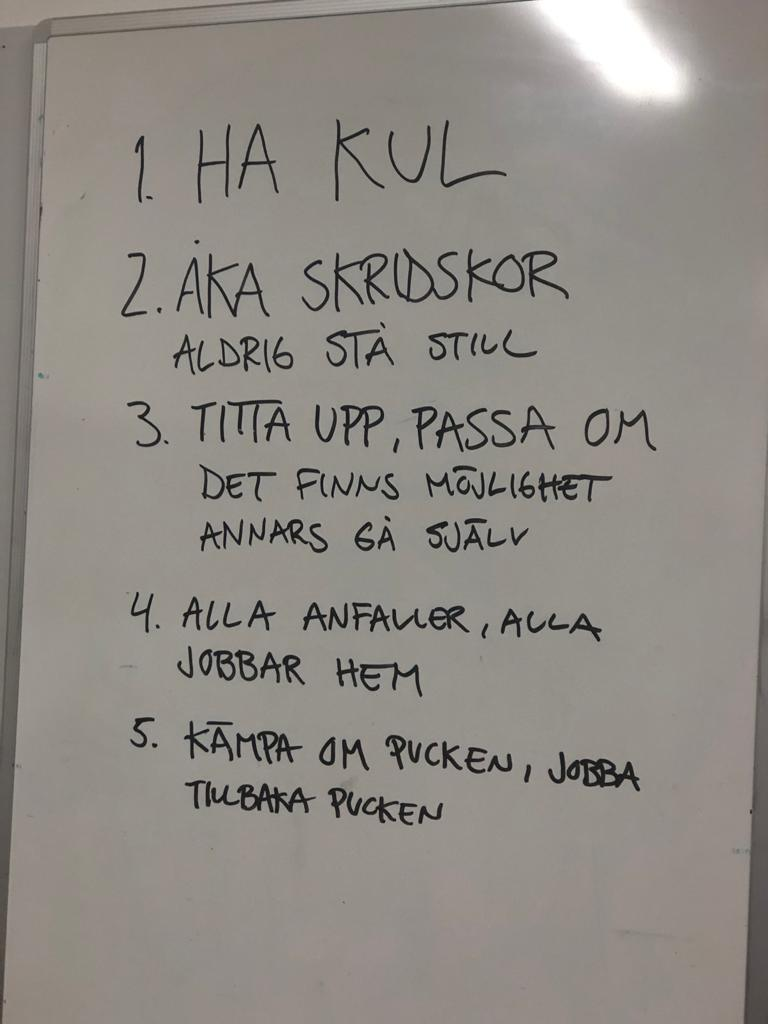 1. HA KUL
2. ÅKA SKRIDSKOR
ALDRIG STÅ STILL
3. TITTA UPP, PASSA OM
DET FINNS MÖJLIGHET
ANNARS GÅ SJÄLV
4. ALLA ANFALLER, ALLA
JOBBAR HEM
5. KÄMPA OM PUCKEN, JOBBA
TILLBAKA PUCKEN